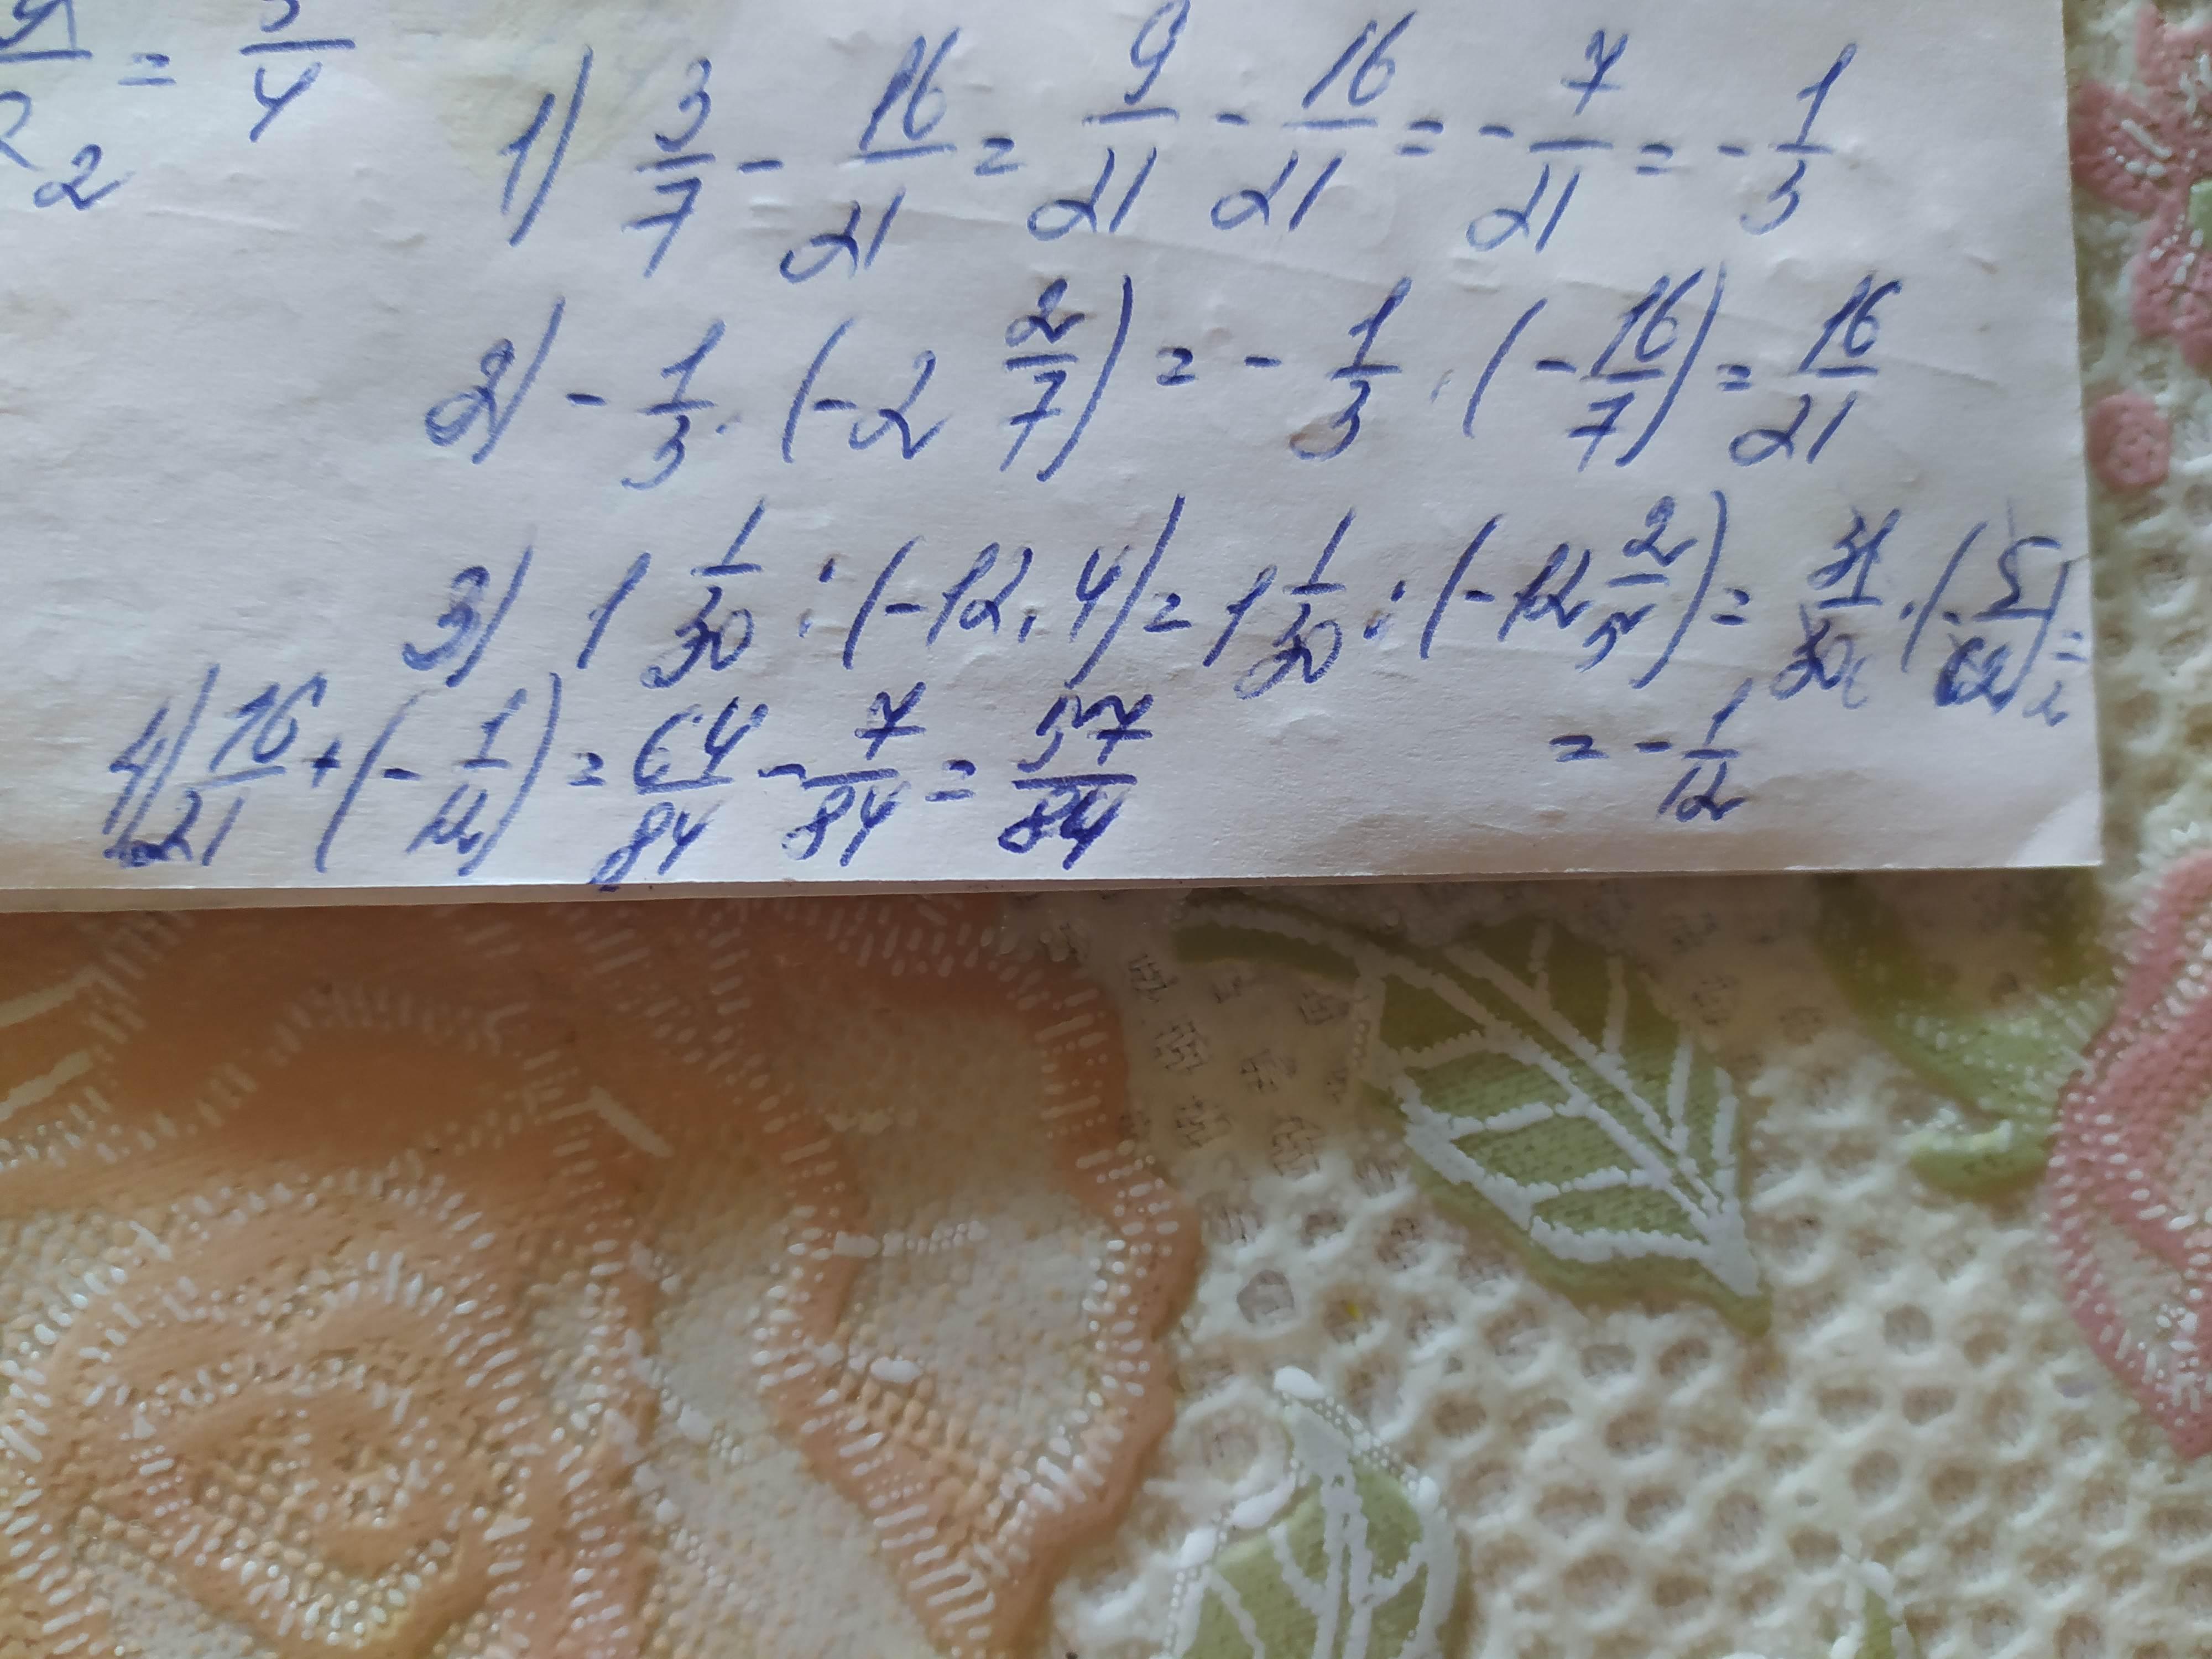 = 3/4
2
1) 3/7 - 16/21 = 9/21 - 16/21 = - 7/21 = - 1/3
2) - 1/3 · (-2 2/7) = - 1/3 · (- 16/7) = 16/21
3) 1 1/30 : (-12,4) = 1 1/30 : (-12 2/5) = 31/30 · (- 5/62) =
= - 1/12
4) 16/21 + (- 1/12) = 64/84 - 7/84 = 57/84